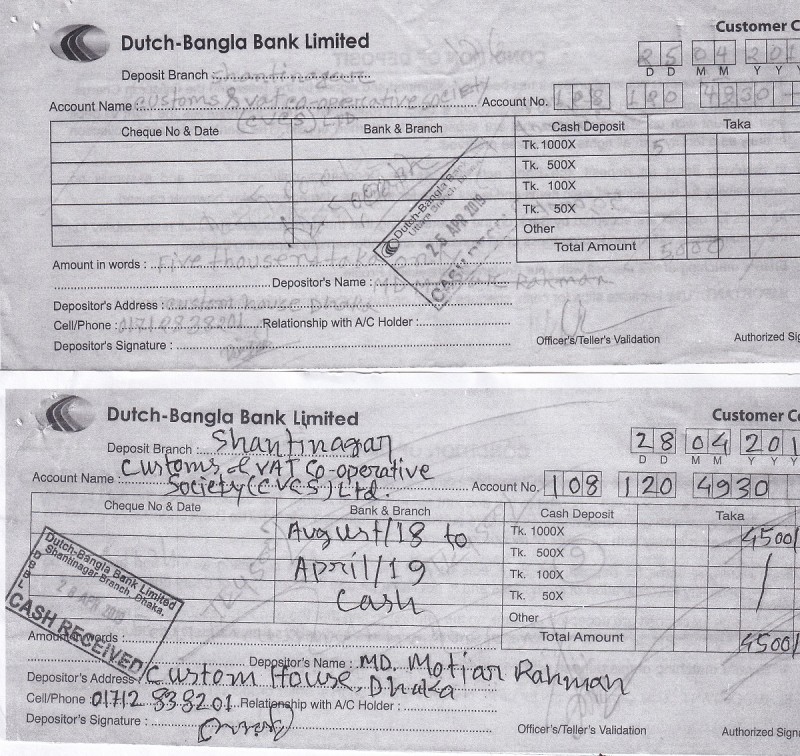 Customer C
Dutch-Bangla Bank Limited
25 04 201
D D M M Y Y Y
Deposit Branch : Shantinagar
Account Name : Customs & vat co-operative society
(CVCS) LTD.
Account No. 108 120 4930
Cheque No & Date Bank & Branch Cash Deposit Taka
Tk. 1000X 5
Tk. 500X
Tk. 100X
Tk. 50X
Other
Total Amount 5000
Dutch-Bangla B
Uttara Branch
25 APR 2019
CASH
Amount in words : Five thousend taka
Depositor's Name : Rahman
Depositor's Address : custom house Dhaka
Cell/Phone : Relationship with A/C Holder :
Depositor's Signature :
Officer's/Teller's Validation Authorized Sig
Customer Co
Dutch-Bangla Bank Limited
28 04 201
D D M M Y Y Y
Deposit Branch : Shantinagar
Account Name : Customs & VAT Co-operative
Society (CVCS) Ltd.
Account No. 108 120 4930
Cheque No & Date Bank & Branch Cash Deposit Taka
August/18 to
April/19
Cash
Tk. 1000X 4500/
Tk. 500X
Tk. 100X
Tk. 50X
Other
Total Amount 4500/
Dutch-Bangla Bank Limited
Shantinagar Branch, Dhaka.
DBBL
28 APR 2019
CASH RECEIVED
Amount in words :
Depositor's Name : MD. Motiar Rahman
Depositor's Address : Custom House, Dhaka
Cell/Phone : 01712 838201 Relationship with A/C Holder :
Depositor's Signature :
Officer's/Teller's Validation Authorized Sign